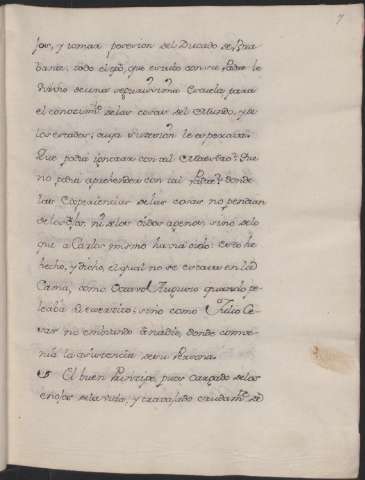 7
jos, y tomar posesion del Ducado de Bra
bante: todo el tpõ, que estubo con su Padre le
sirvio de una segurissima Escuela para
el conocimto de las cosas del Mundo, y de
los estados; cuya sucesion le esperaba.
Que podia ignorar con tal Maestro? Que
no podia aprehender con tal Padre? donde
las Experiencias de las cosas no pendian
de los ojos, ni de los oidos agenos, sino de lo
que a Carlos mismo havia oido: esto he
hecho, y dicho, el qual no se estava en la
Cama, como Octavo Augusto quando pe
leaba el exercito; sino como Julio Ce-
sar no embiando a nadie, donde conve-
nia la asistencia de su Persona.
El buen Principe, pues cargado de los
enojos de la vida, y trabajado crudamte de